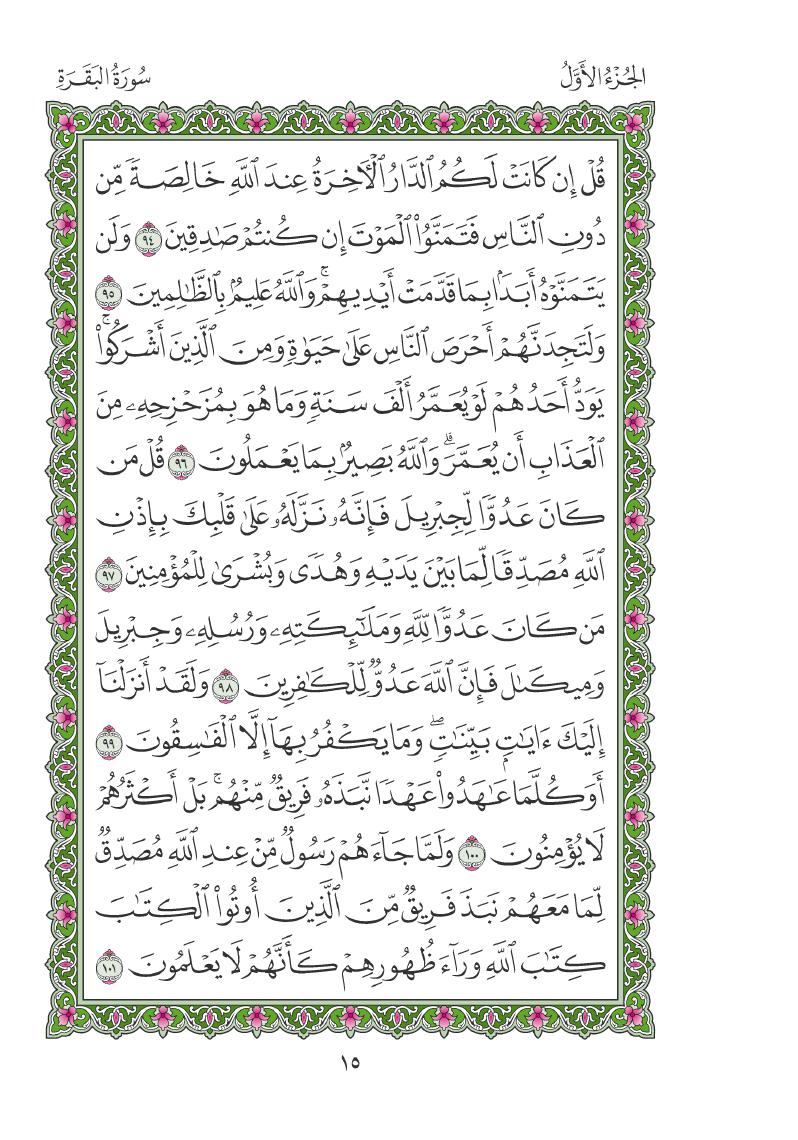 الجُزْءُ الأَوَّلُ
سُورَةُ البَقَرَةِ
قُلۡ إِن كَانَتۡ لَكُمُ ٱلدَّارُ ٱلۡأٓخِرَةُ عِندَ ٱللَّهِ خَالِصَةٗ مِّن
دُونِ ٱلنَّاسِ فَتَمَنَّوُاْ ٱلۡمَوۡتَ إِن كُنتُمۡ صَٰدِقِينَ ٩٤ وَلَن
يَتَمَنَّوۡهُ أَبَدَۢا بِمَا قَدَّمَتۡ أَيۡدِيهِمۡۚ وَٱللَّهُ عَلِيمُۢ بِٱلظَّٰلِمِينَ ٩٥
وَلَتَجِدَنَّهُمۡ أَحۡرَصَ ٱلنَّاسِ عَلَىٰ حَيَوٰةٖ وَمِنَ ٱلَّذِينَ أَشۡرَكُواْۚ
يَوَدُّ أَحَدُهُمۡ لَوۡ يُعَمَّرُ أَلۡفَ سَنَةٖ وَمَا هُوَ بِمُزَحۡزِحِهِۦ مِنَ
ٱلۡعَذَابِ أَن يُعَمَّرَۗ وَٱللَّهُ بَصِيرُۢ بِمَا يَعۡمَلُونَ ٩٦ قُلۡ مَن
كَانَ عَدُوّٗا لِّجِبۡرِيلَ فَإِنَّهُۥ نَزَّلَهُۥ عَلَىٰ قَلۡبِكَ بِإِذۡنِ
ٱللَّهِ مُصَدِّقٗا لِّمَا بَيۡنَ يَدَيۡهِ وَهُدٗى وَبُشۡرَىٰ لِلۡمُؤۡمِنِينَ ٩٧
مَن كَانَ عَدُوّٗا لِّلَّهِ وَمَلَٰٓئِكَتِهِۦ وَرُسُلِهِۦ وَجِبۡرِيلَ
وَمِيكَىٰلَ فَإِنَّ ٱللَّهَ عَدُوّٞ لِّلۡكَٰفِرِينَ ٩٨ وَلَقَدۡ أَنزَلۡنَآ
إِلَيۡكَ ءَايَٰتِۭ بَيِّنَٰتٖۖ وَمَا يَكۡفُرُ بِهَآ إِلَّا ٱلۡفَٰسِقُونَ ٩٩
أَوَكُلَّمَا عَٰهَدُواْ عَهۡدٗا نَّبَذَهُۥ فَرِيقٞ مِّنۡهُمۚ بَلۡ أَكۡثَرُهُمۡ
لَا يُؤۡمِنُونَ ١٠٠ وَلَمَّا جَآءَهُمۡ رَسُولٞ مِّنۡ عِندِ ٱللَّهِ مُصَدِّقٞ
لِّمَا مَعَهُمۡ نَبَذَ فَرِيقٞ مِّنَ ٱلَّذِينَ أُوتُواْ ٱلۡكِتَٰبَ
كِتَٰبَ ٱللَّهِ وَرَآءَ ظُهُورِهِمۡ كَأَنَّهُمۡ لَا يَعۡلَمُونَ ١٠١
١٥